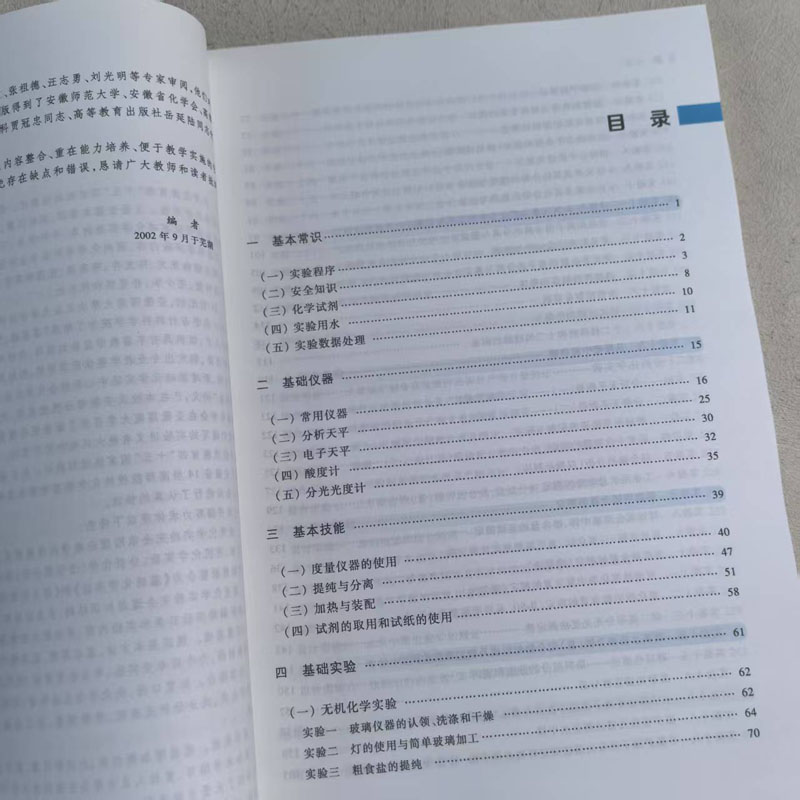 、张祖德、汪志勇、刘光明等专家审阅,他们
版得到了安徽师范大学、安徽省化学会、高
科贾冠忠同志、高等教育出版社岳延陆同志
内容整合、重在能力培养、便于教学实施
存在缺点和错误,恳请广大教师和读者
编 者
2002 年 9 月于芜湖
目 录
一 基本常识 1
(一)实验程序 2
(二)安全知识 3
(三)化学试剂 8
(四)实验用水 10
(五)实验数据处理 11
二 基础仪器 15
(一)常用仪器 16
(二)分析天平 25
(三)电子天平 30
(四)酸度计 32
(五)分光光度计 35
三 基本技能 39
(一)度量仪器的使用 40
(二)提纯与分离 47
(三)加热与装配 51
(四)试剂的取用和试纸的使用 58
四 基础实验 61
(一)无机化学实验 62
实验一 玻璃仪器的认领、洗涤和干燥 62
实验二 灯的使用与简单玻璃加工 64
实验三 粗食盐的提纯 70